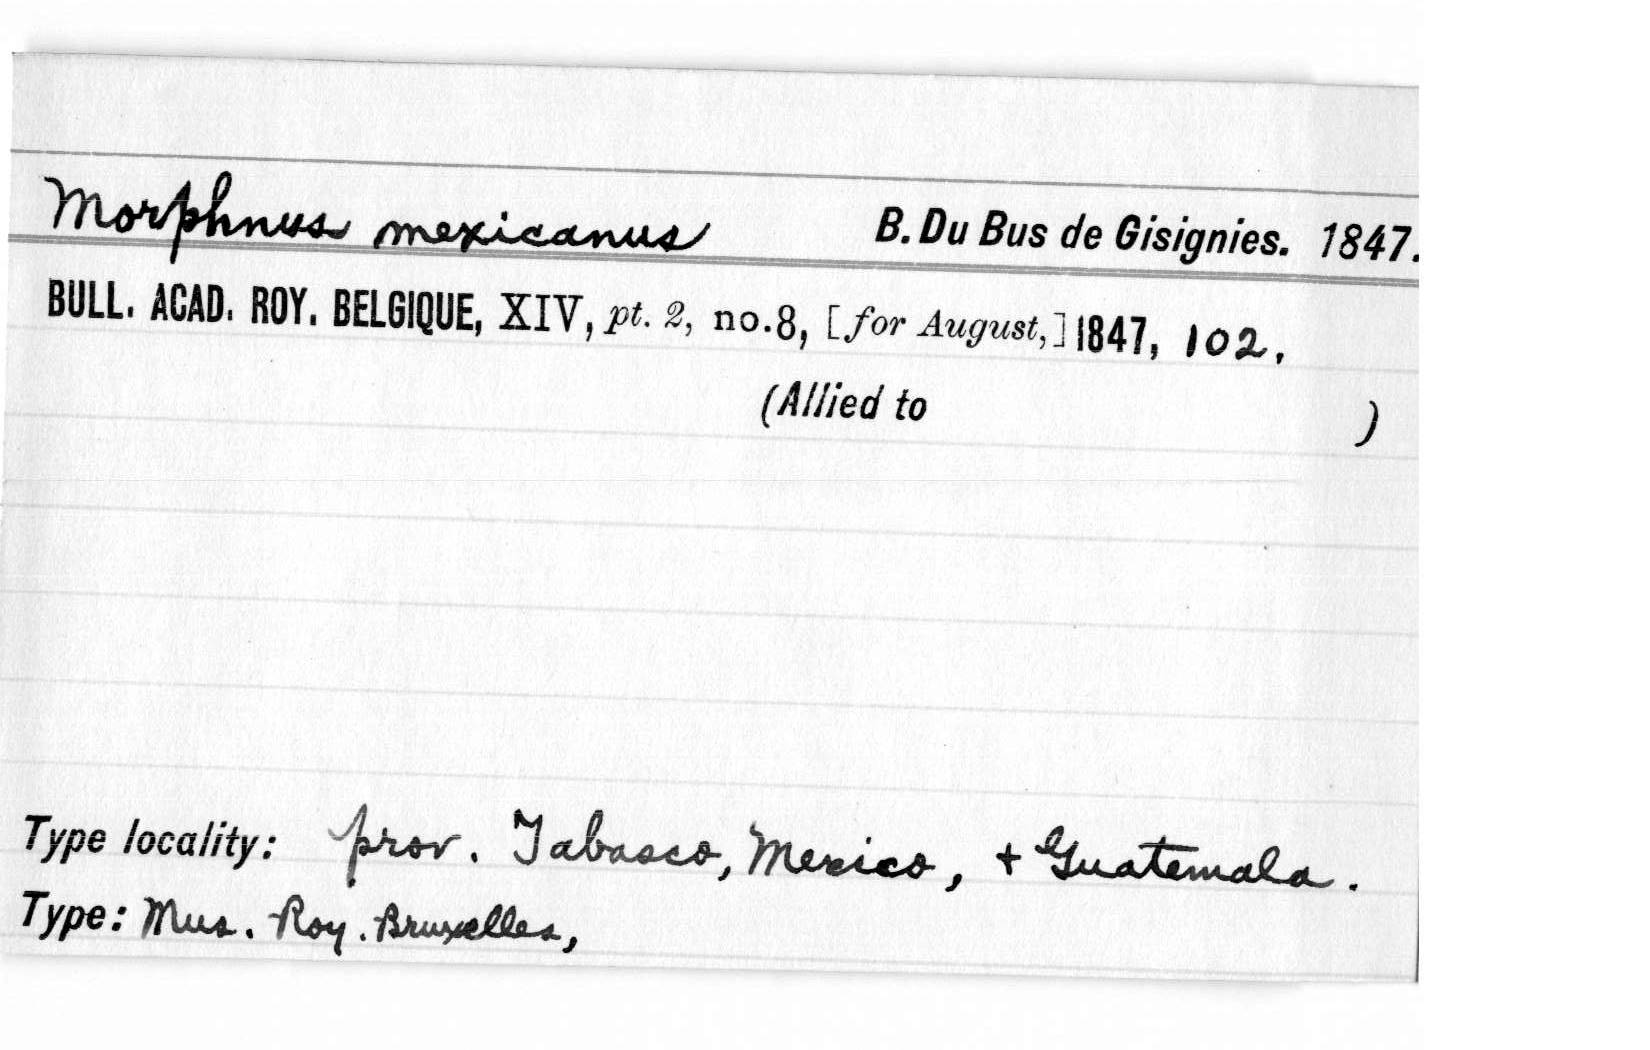 Morphnus mexicanus B. Du Bus de Gisignies. 1847.
BULL. ACAD. ROY. BELGIQUE, XIV, pt. 2, no. 8, [for August,] 1847, 102.
(Allied to )
Type locality: prov. Tabasco, Mexico, + Guatemala.
Type: Mus. Roy. Bruxelles,